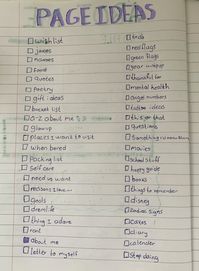 PAGE IDEAS
wishlist
jokes
names
food
quotes
poetry
gift ideas
bucket list
A-Z about me
glowup
places I want to visit
when bored
packing list
self care
need vs want
reasons I love
goals
dream life
thing I adore
rant
about me
letter to myself
fends
red flags
green flags
year wrapup
thankful for
mental health
angel numbers
tattoo ideas
this or that
questions
something
movies
school stuff
happy guide
books
things to remember
disney
zodiac signs
cakes
diary
calender
stop doing